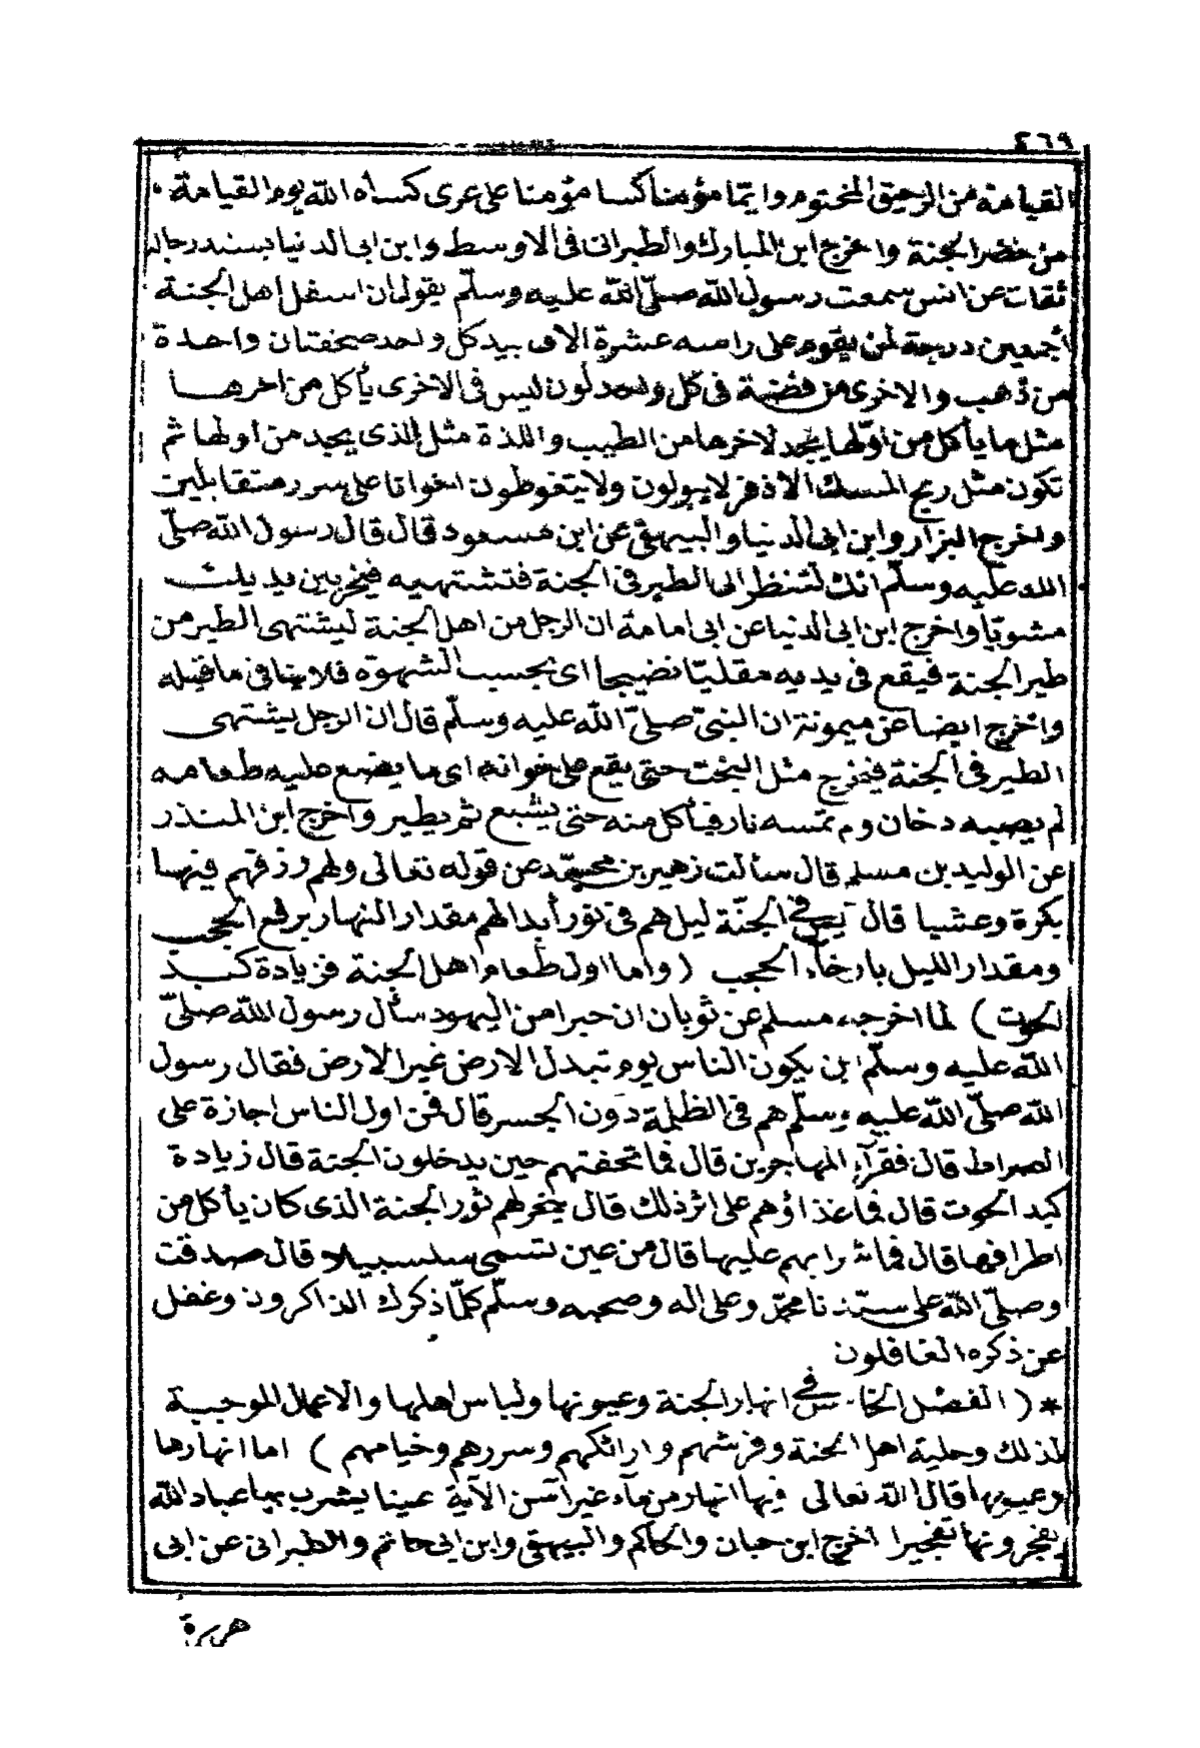 ٤٦٩
القيامة من الرحيق المختوم وايّما مؤمنا كسا مؤمنا على عرى كساه الله يوم القيامة
من خضر الجنة واخرج ابن المبارك والطبرانى فى الاوسط وابن ابى الدنيا بسند رجاله
ثقات عن انس سمعت رسول الله صلّى الله عليه وسلّم يقول ان اسفل اهل الجنة
أجمعين درجة لمن يقوم على راسه عشرة الاف بيد كل واحد صحفتان واحدة
من ذهب والاخرى من فضة فى كل واحد لون ليس فى الاخرى يأكل من اخرها
مثل ما يأكل من اوّلها يجد لاخرها من الطيب واللذة مثل الذى يجد من اولها ثم
تكون مثل ريح المسك الاذفر لا يبولون ولا يتغوطون اخوانا على سرر متقابلين
واخرج البزار وابن ابى الدنيا والبيهقى عن ابن مسعود قال قال رسول الله صلّى
الله عليه وسلّم انك لتنظر الى الطير فى الجنة فتشتهيه فيخر بين يديك
مشويّا واخرج ابن ابى الدنيا عن ابى امامة ان الرجل من اهل الجنة ليشتهى الطير من
طير الجنة فيقع فى يديه مقليّا نضيجا اى بحسب الشهوة فلا ينافى ما قبله
واخرج ايضا عن ميمونة ان النبىّ صلىّ الله عليه وسلّم قال ان الرجل يشتهى
الطير فى الجنة فيخرج مثل البخت حتى يقع على خوانه اى ما يضع عليه طعامه
لم يصبه دخان ولم تمسه نار فيأكل منه حتى يشبع ثم يطير واخرج ابن المنذر
عن الوليد بن مسلم قال سألت زهير بن محمّد عن قوله تعالى ولهم رزقهم فيها
بكرة وعشيا قال ليس فى الجنّة ليل هم فى نور أبدا لهم مقدار النهار برفع الحجب
ومقدار الليل بارخاء الحجب (واما اول طعام اهل الجنة فزيادة كبد
الحوت) لما اخرجه مسلم عن ثوبان ان حبرا من اليهود سأل رسول الله صلىّ
الله عليه وسلّم اين يكون الناس يوم تبدل الارض غير الارض فقال رسول
الله صلىّ الله عليه وسلّم هم فى الظلمة دون الجسر قال فمن اول الناس اجازة على
الصراط قال فقرآء المهاجرين قال فما تحفتهم حين يدخلون الجنة قال زيادة
كبد الحوت قال فما غذاؤهم على اثر ذلك قال ينحر لهم ثور الجنة الذى كان يأكل من
اطرافها قال فما شرابهم عليها قال من عين تسمى سلسبيلا قال صدقت
وصلىّ الله على سيّدنا محمّد وعلى اله وصحبه وسلّم كلّما ذكرك الذاكرون وغفل
عن ذكره الغافلون
* (الفصل الخامس فى انهار الجنة وعيونها ولباس اهلها والاعمال الموجبة
لذلك وحلية اهل الجنة وفرشهم وارائكهم وسررهم وخيامهم) اما انهارها
وعيونها قال الله تعالى فيها انهار من مآء غير آسن الآية عينا يشرب بها عباد الله
يفجرونها تفجيرا اخرج ابن حبان والحاكم والبيهقى وابن ابى حاتم والطبرانى عن ابى
هريرة